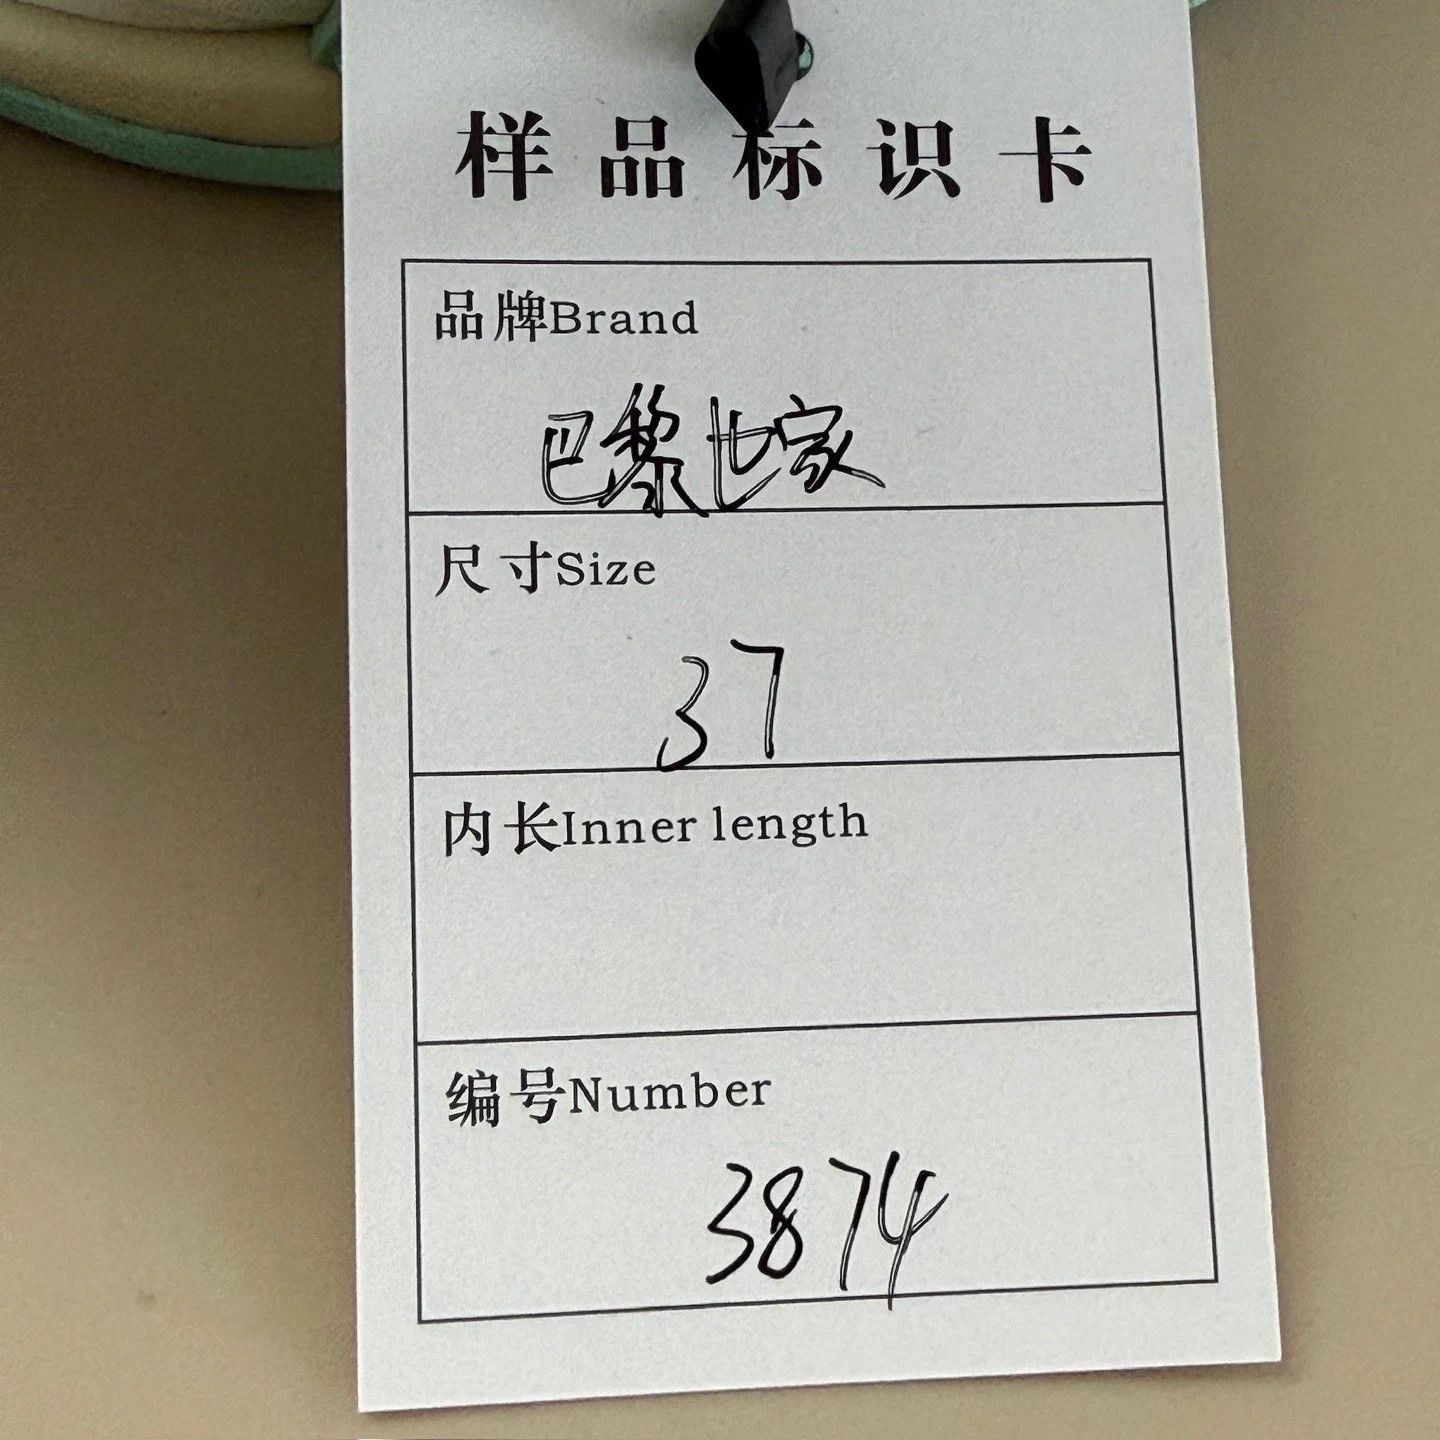 样品标识卡
品牌Brand
巴黎世家
尺寸Size
37
内长Inner length
编号Number
3874